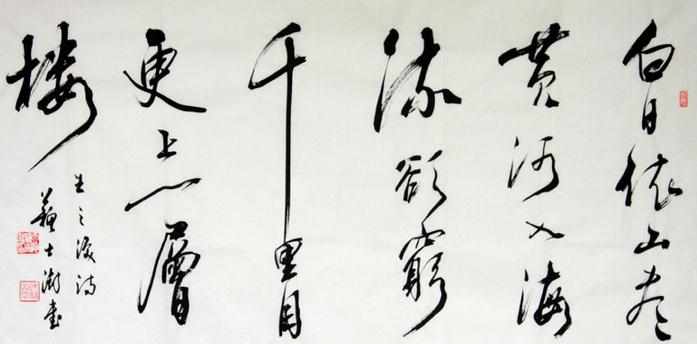 白日依山尽
黄河入海
流欲窮
千里目
更上一層
楼
王之渙诗
蘇士澍书